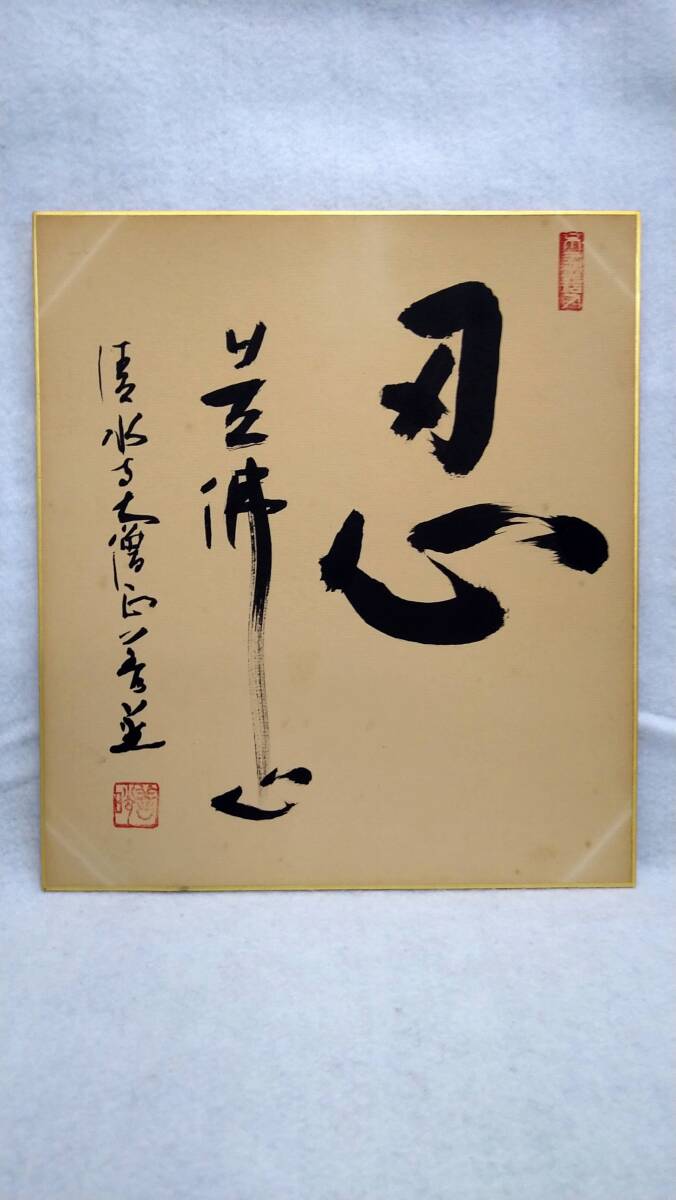 忍
佛心
清水寺大僧正善